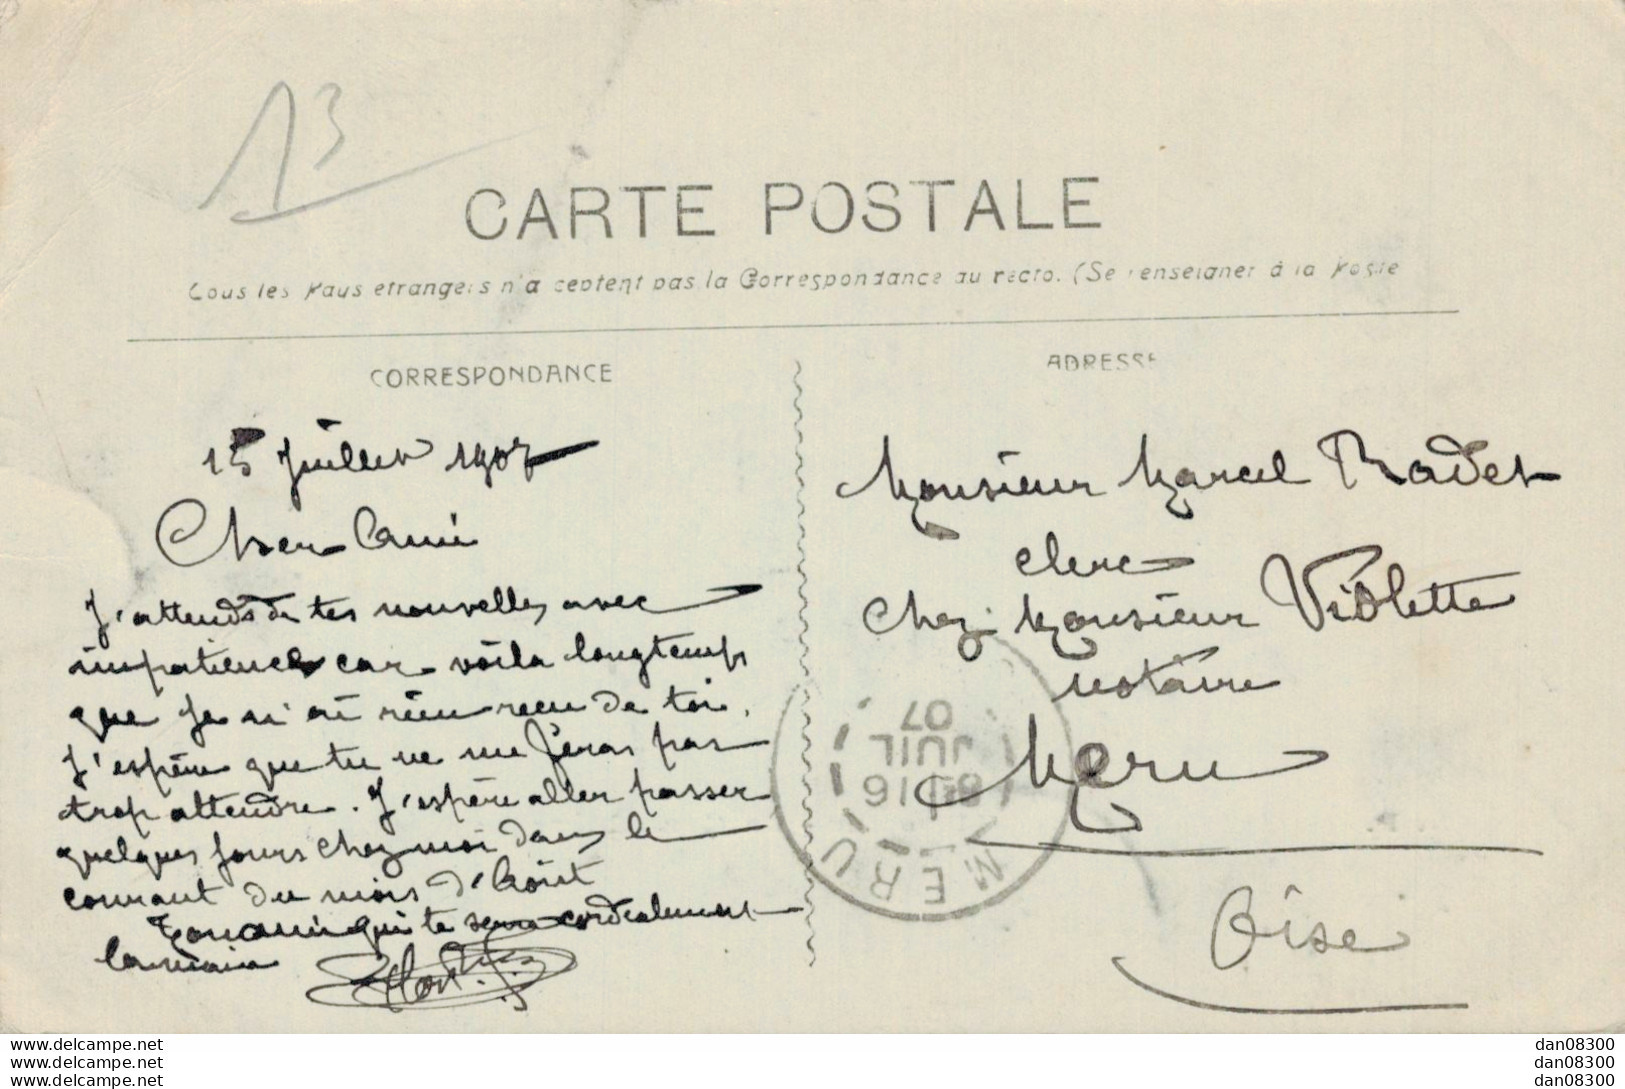 13
CARTE POSTALE
Tous les Pays etrangers n'acceptent pas la Correspondance au recto. (Se renseigner à la Poste
CORRESPONDANCE
ADRESSE
15 Juillet 1907
Cher Ami
J'attends de tes nouvelles avec
impatience car voila longtemps
que je n'ai rien reçu de toi.
J'espère que tu ne me feras pas
trop attendre. J'espère aller passer
quelques jours chez moi dans le
courant du mois d'Août
Ton ami qui te serre cordialement
la main
Monsieur Marcel Radet
clerc
chez Monsieur Violette
notaire
Meru
Oise
MERU
8 16
JUIL
07
www.delcampe.net
www.delcampe.net
www.delcampe.net
dan08300
dan08300
dan08300